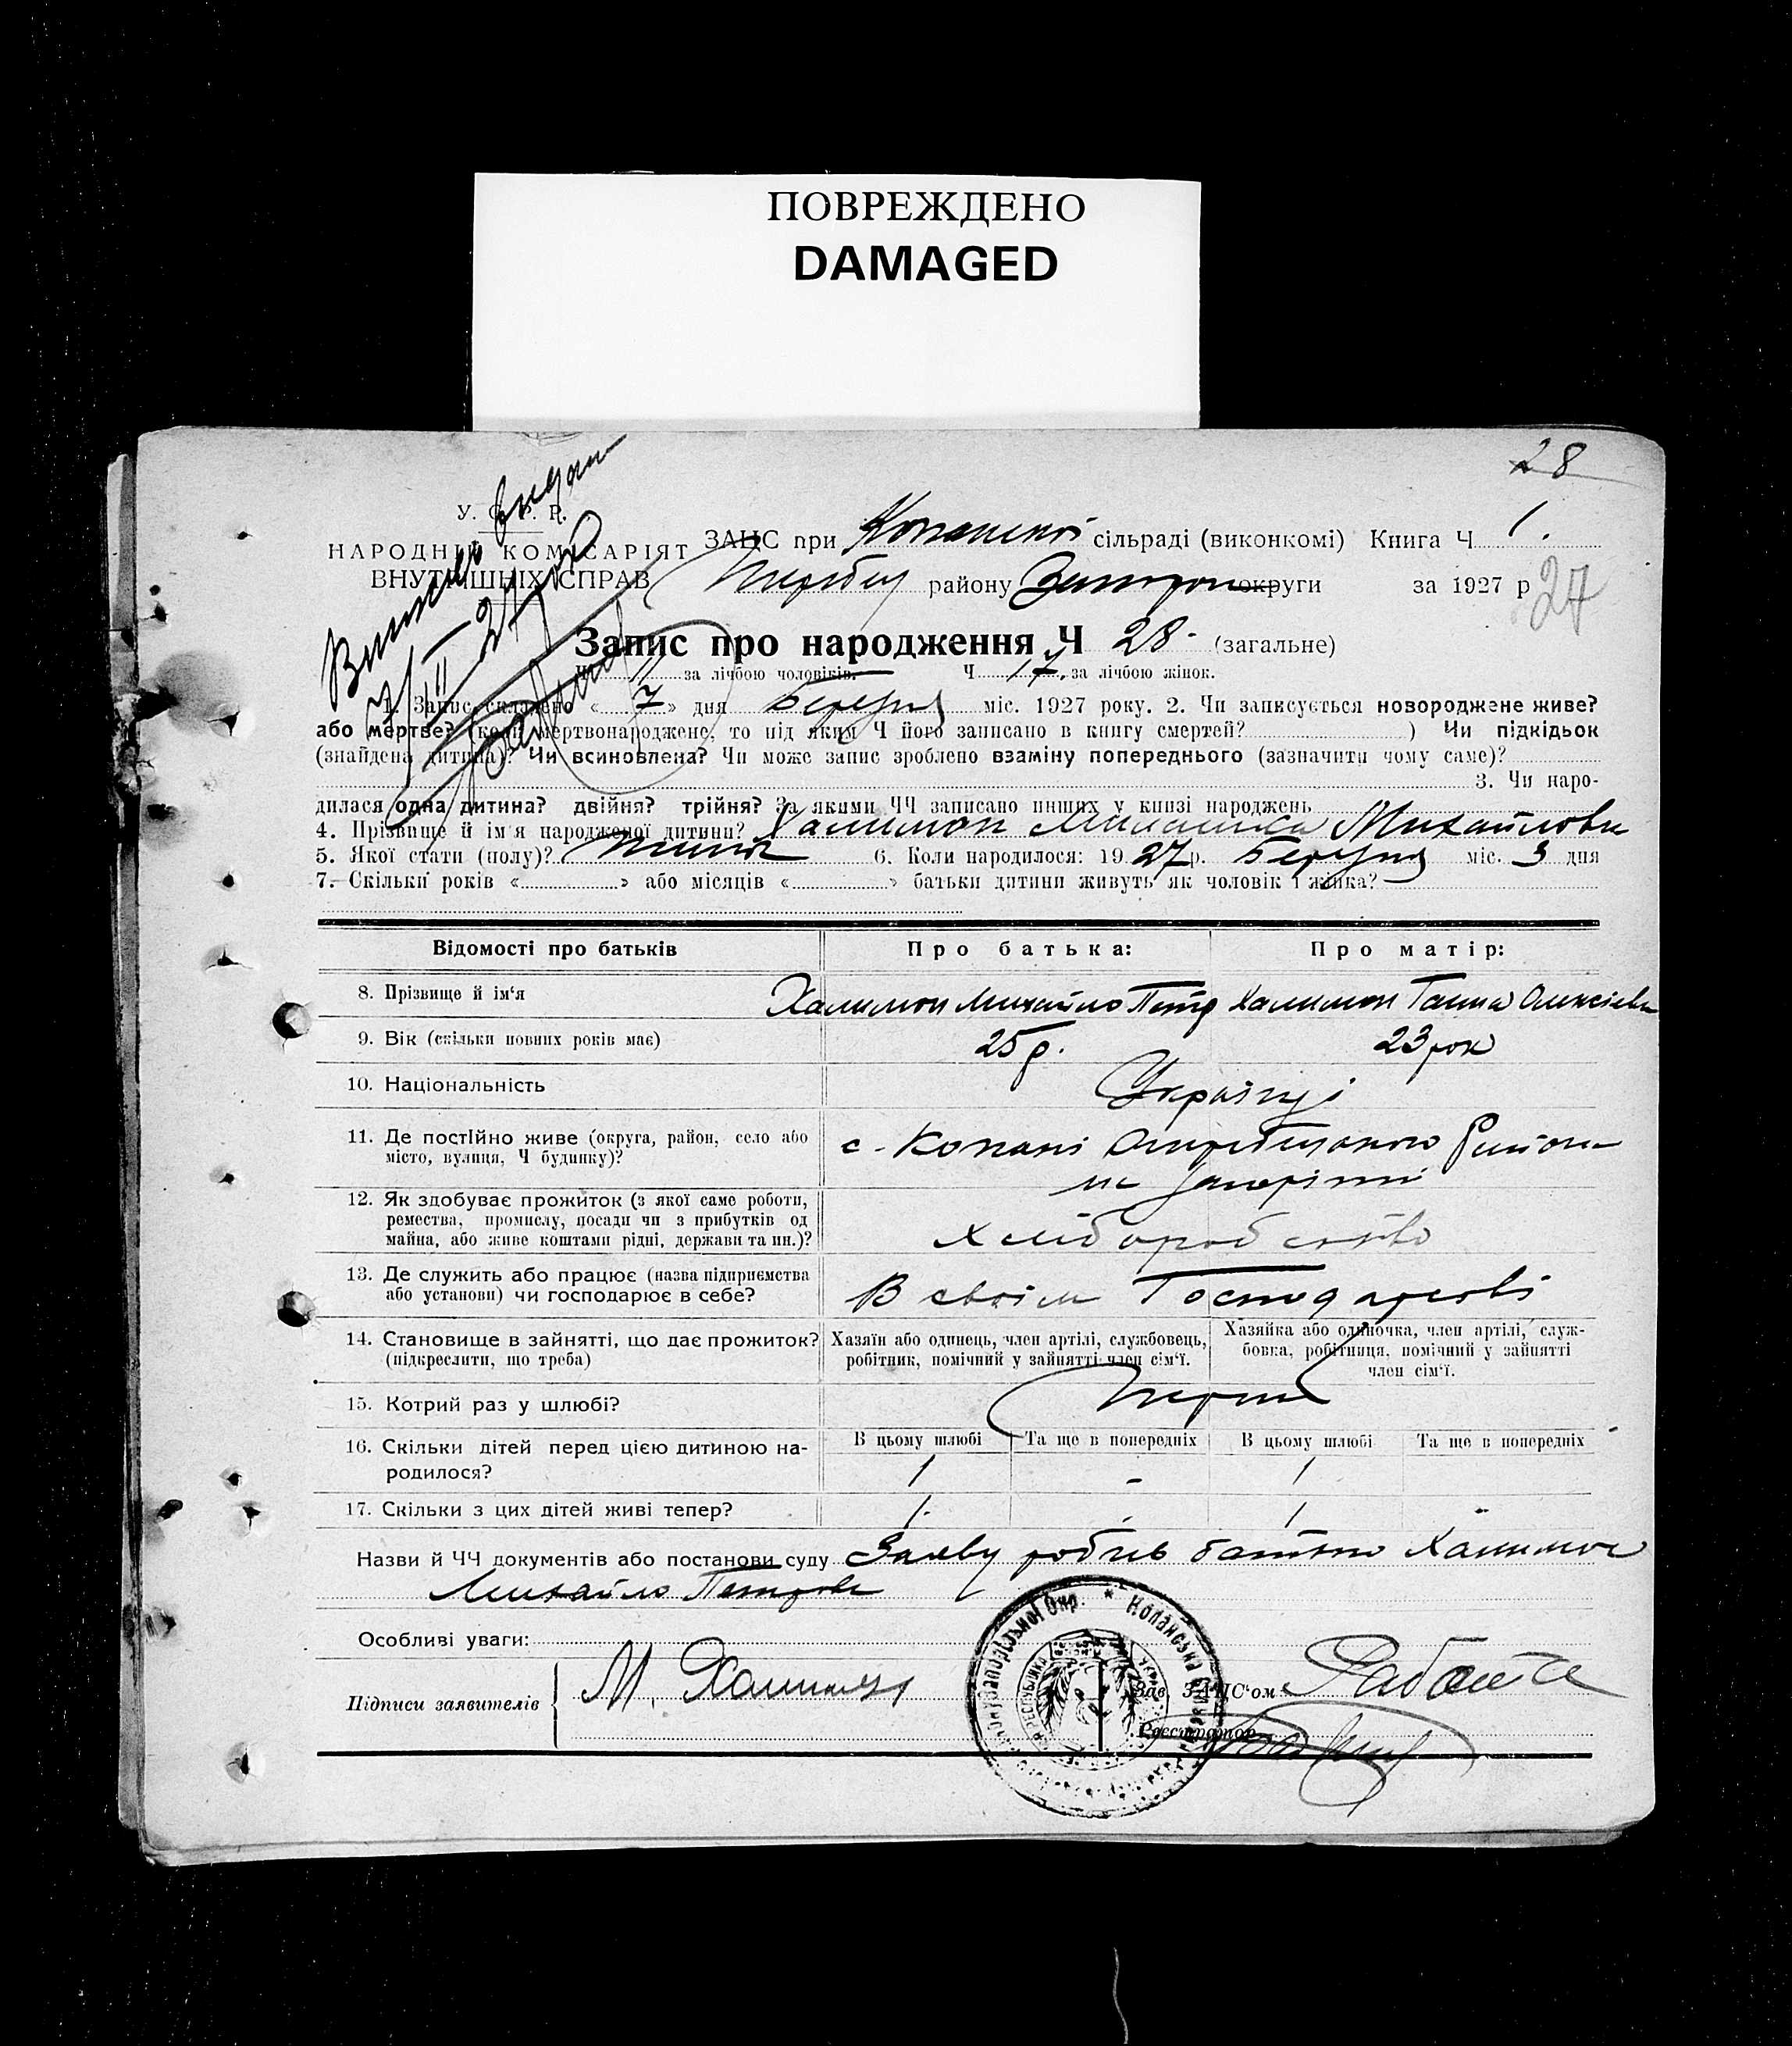 ПОВРЕЖДЕНО
DAMAGED
28
Виписку видано
У. С. Р. Р.
НАРОДНІЙ КОМІСАРІЯТ
ВНУТРІШНІХ СПРАВ
ЗАЦС при Копанской сільраді (виконкомі) Книга Ч 1.
району округи за 1927 р
27
Запис про народження Ч 28 (загальне)
Ч 11 за лічбою чоловіків. Ч 17. за лічбою жінок.
1. Запис складено « 7 » дня Березня міс. 1927 року. 2. Чи записується новороджене живе?
або мертве? (коли мертвонароджене, то під яким Ч його записано в книгу смертей? ) Чи підкідьок
(знайдена дитина)? Чи всиновлена? Чи може запис зроблено взаміну попереднього (зазначити чому саме)?
3. Чи наро-
дилася одна дитина? двійня? трійня? За якими ЧЧ записано инших у книзі народжень
4. Прізвище й ім'я народженої дитини? Халимон Михайлови
5. Якої стати (полу)? 6. Коли народилося: 1927 р. Березня міс. 3 дня
7. Скільки років « » або місяців « » батьки дитини живуть як чоловік і жінка?
Відомості про батьків Про батька: Про матір:
8. Прізвище й ім‘я Халимон Михайло Петр Халимон Ганна Олексієвн
9. Вік (скільки повних років має) 25 р. 23 рок
10. Національність Українці
11. Де постійно живе (округа, район, село або с. Копані Району
місто, вулиця, Ч будинку)? на Запоріжжі
12. Як здобуває прожиток (з якої саме роботи,
ремества, промислу, посади чи з прибутків од
майна, або живе коштами рідні, держави та ин.)? Хліборобство
13. Де служить або працює (назва підприємства
або установи) чи господарює в себе? В своїм Господарстві
14. Становище в зайнятті, що дає прожиток?
(підкреслити, що треба)
Хазяїн або одинець, член артілі, службовець,
робітник, помічний у зайнятті член сім‘ї.
Хазяйка або одиночка, член артілі, служ-
бовка, робітниця, помічний у зайнятті
член сім‘ї.
15. Котрий раз у шлюбі? Перший
16. Скільки дітей перед цією дитиною на-
родилося?
В цьому шлюбі Та ще в попередніх В цьому шлюбі Та ще в попередніх
1 - 1
17. Скільки з цих дітей живі тепер? 1. 1
Назви й ЧЧ документів або постанови суду Заяву робив батько Халимон
Михайло Петрове
Особливі уваги:
Підписи заявителів М. Халимон
Зав. ЗАЦС‘ом
Реєстратор